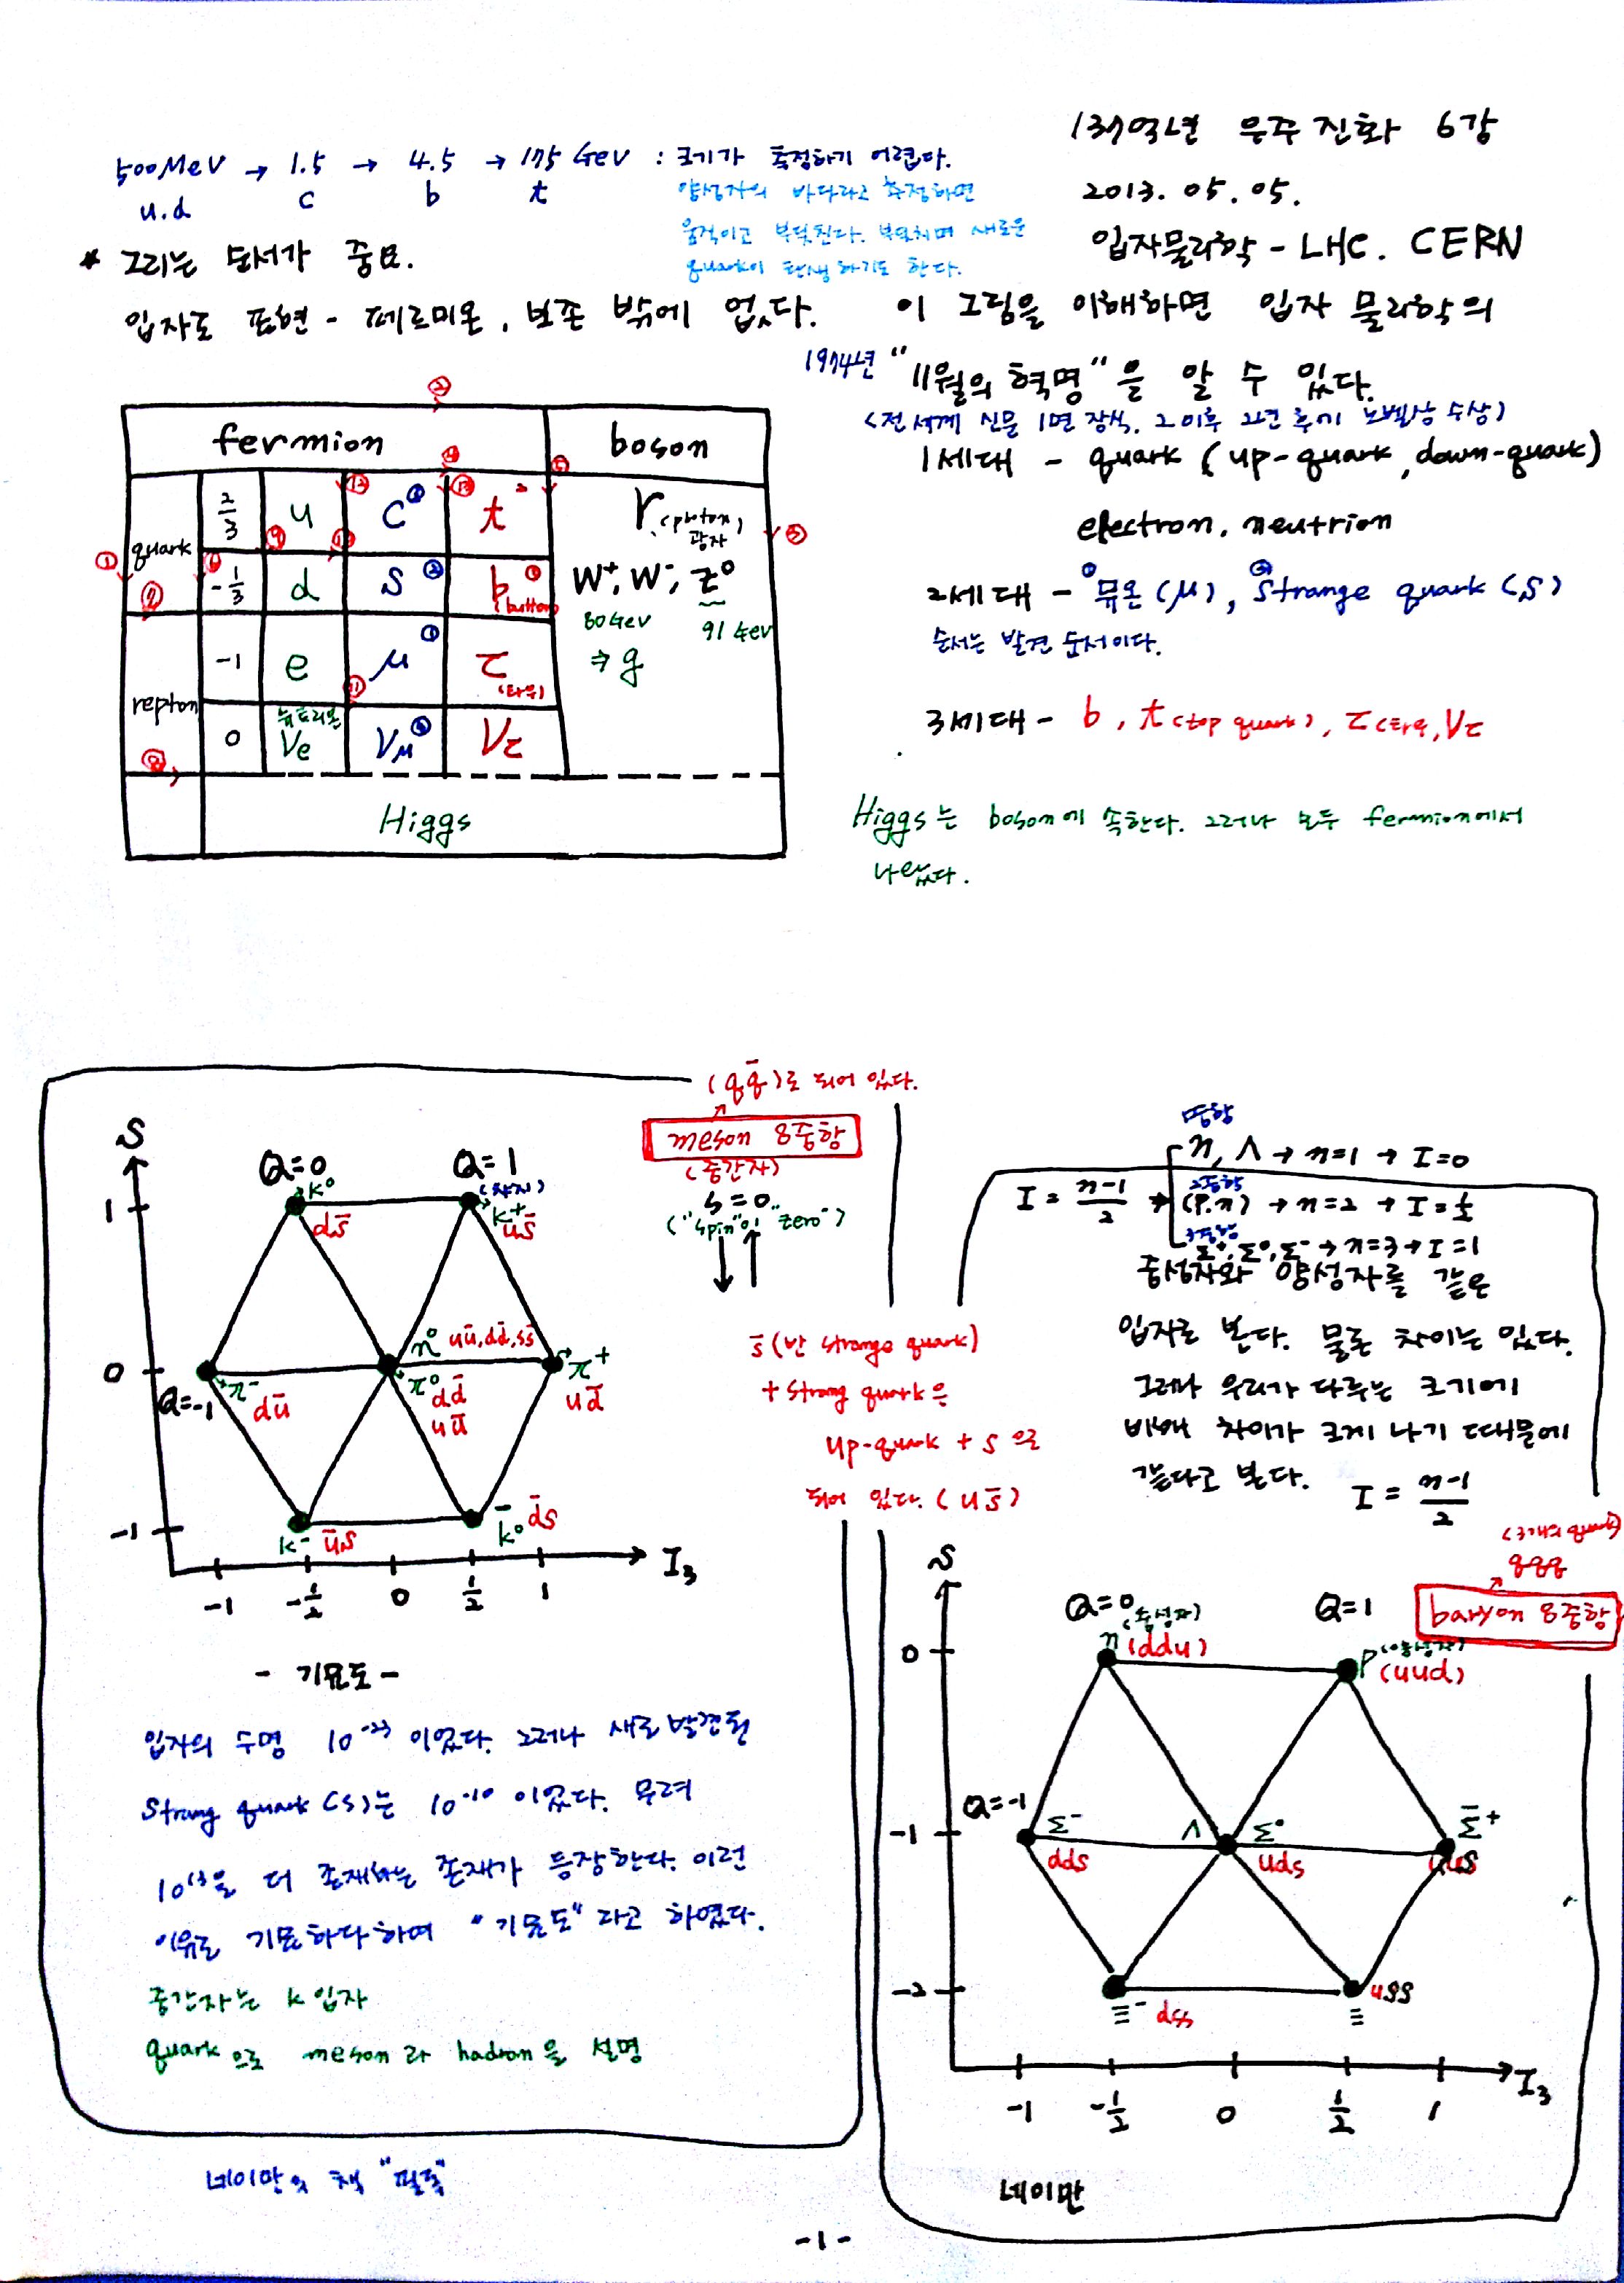 137억년 우주진화 6강
2013. 05. 05.
입자물리학 - LHC. CERN
500MeV → 1.5 → 4.5 → 175 GeV : 크기가 측정하기 어렵다.
u.d c b t
양성자의 바다라고 측정하면
움직이고 부딪친다. 부딪치며 새로운
quark이 탄생하기도 한다.
* 그리는 순서가 중요.
입자도 표현 - 페르미온, 보존 밖에 없다.
이 그림을 이해하면 입자 물리학의
1974년 "11월의 혁명"을 알 수 있다.
(전세계 신문 1면 장식. 2이후 2년 후에 노벨상 수상)
1세대 - quark (up-quark, down-quark)
electron. neutrion
2세대 - ① 뮤온 (μ), ② Strange quark (s)
순서는 발견 순서이다.
3세대 - b, t (top quark), τ (타우), ντ
Higgs는 boson에 속한다. 그러나 모두 fermion에서
나왔다.
② ④ ⑤
fermion boson
① quark ⑦ ⑥ 2/3 u ⑨ ⑫ c ⑬ t γ (proton) 광자 ③
-1/3 d ⑩ s ② b ① (buttom) W⁺, W⁻, Z⁰
80 GeV 91 GeV
repton ⑧ -1 e ⑪ μ ① τ (타우) ⇒ g
0 뉴트리온 νe νμ ντ
Higgs
(qq̄)로 되어 있다.
meson 8중항
(중간자)
s = 0
("spin"이 "zero")
S
Q=0 Q=1
(촤지)
1 K⁰ ds̄ K⁺ us̄
0 Q=-1 π⁻ dū
η⁰ uū, dd̄, ss̄
π⁰ dd̄
uū
π⁺ ud̄
-1 K⁻ ūs K̄⁰ d̄s
-1 -1/2 0 1/2 1 I₃
s̄ (반 strange quark)
+ strang quark은
up-quark + s 으로
되어 있다. (us̄)
- 기묘도 -
입자의 수명 10⁻²³ 이었다. 그러나 새로 발견된
Strang quark (s)는 10⁻¹⁰ 이었다. 무려
10¹³을 더 존재하는 존재가 등장한다. 이런
이유로 기묘하다 하여 "기묘도"라고 하였다.
중간자는 K 입자
quark으로 meson과 hadron을 설명
네이만의 책
I = n-1/2 →
η, Λ → n=1 → I=0
2중항
(P.n) → n=2 → I=1/2
3중항
Σ⁺, Σ⁰, Σ⁻ → n=3 → I=1
중성자와 양성자를 같은
입자로 본다. 물론 차이는 있다.
그러나 우리가 다루는 크기에
비해 차이가 크게 나기 때문에
같다고 본다. I = n-1/2
(3개의 quark)
qqq
baryon 8중항
S
Q=0 Q=1
0 (중성자) n (ddu) P (양성자) (uud)
-1 Q=-1 Σ⁻ dds Λ Σ⁰ uds Σ̄⁺
-2 Ξ⁻ dss Ξ uss
-1 -1/2 0 1/2 1 I₃
네이만
-1-